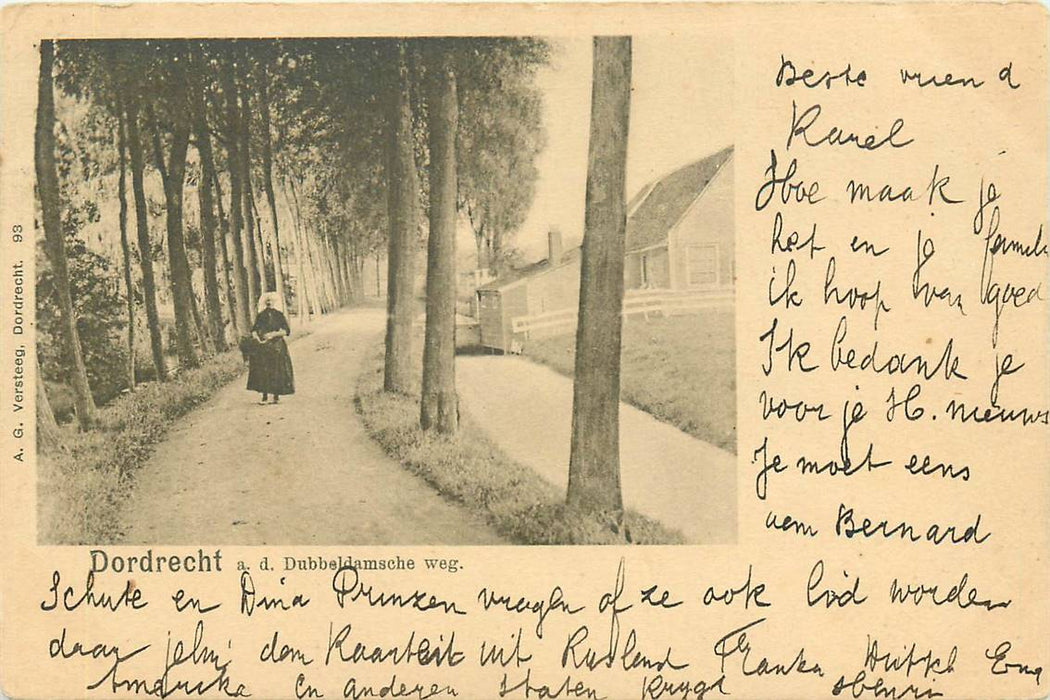 Beste vriend
Karel
Hoe maak je
het en je famili
ik hoop van goed
Ik bedank je
voor je H. nieuws
Je moet eens
aan Bernard
A. G. Versteeg, Dordrecht. 93
Dordrecht a. d. Dubbeldamsche weg.
Schute en Dina Prinzen vragen of ze ook lid worden
daar dan Kaarten uit Rusland Frankr Eng
Amerieka en anderen Staten krygt